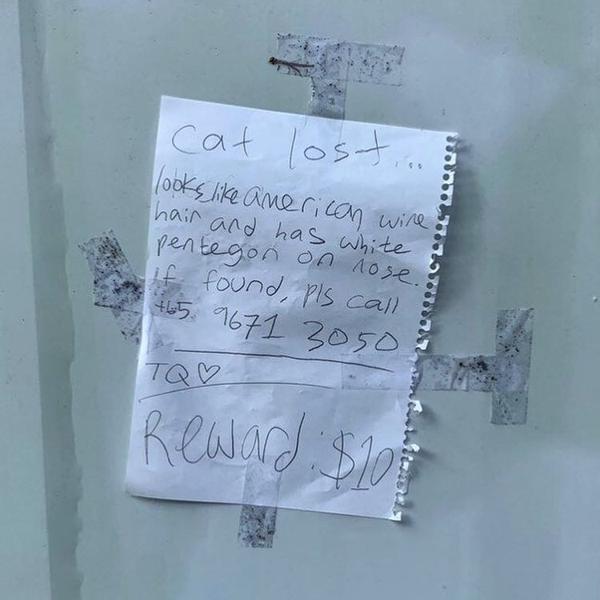 Cat lost...
looks like american wire
hair and has white
pentegon on nose.
If found, pls call
+65 9671 3050
TQ♡
Reward: $10